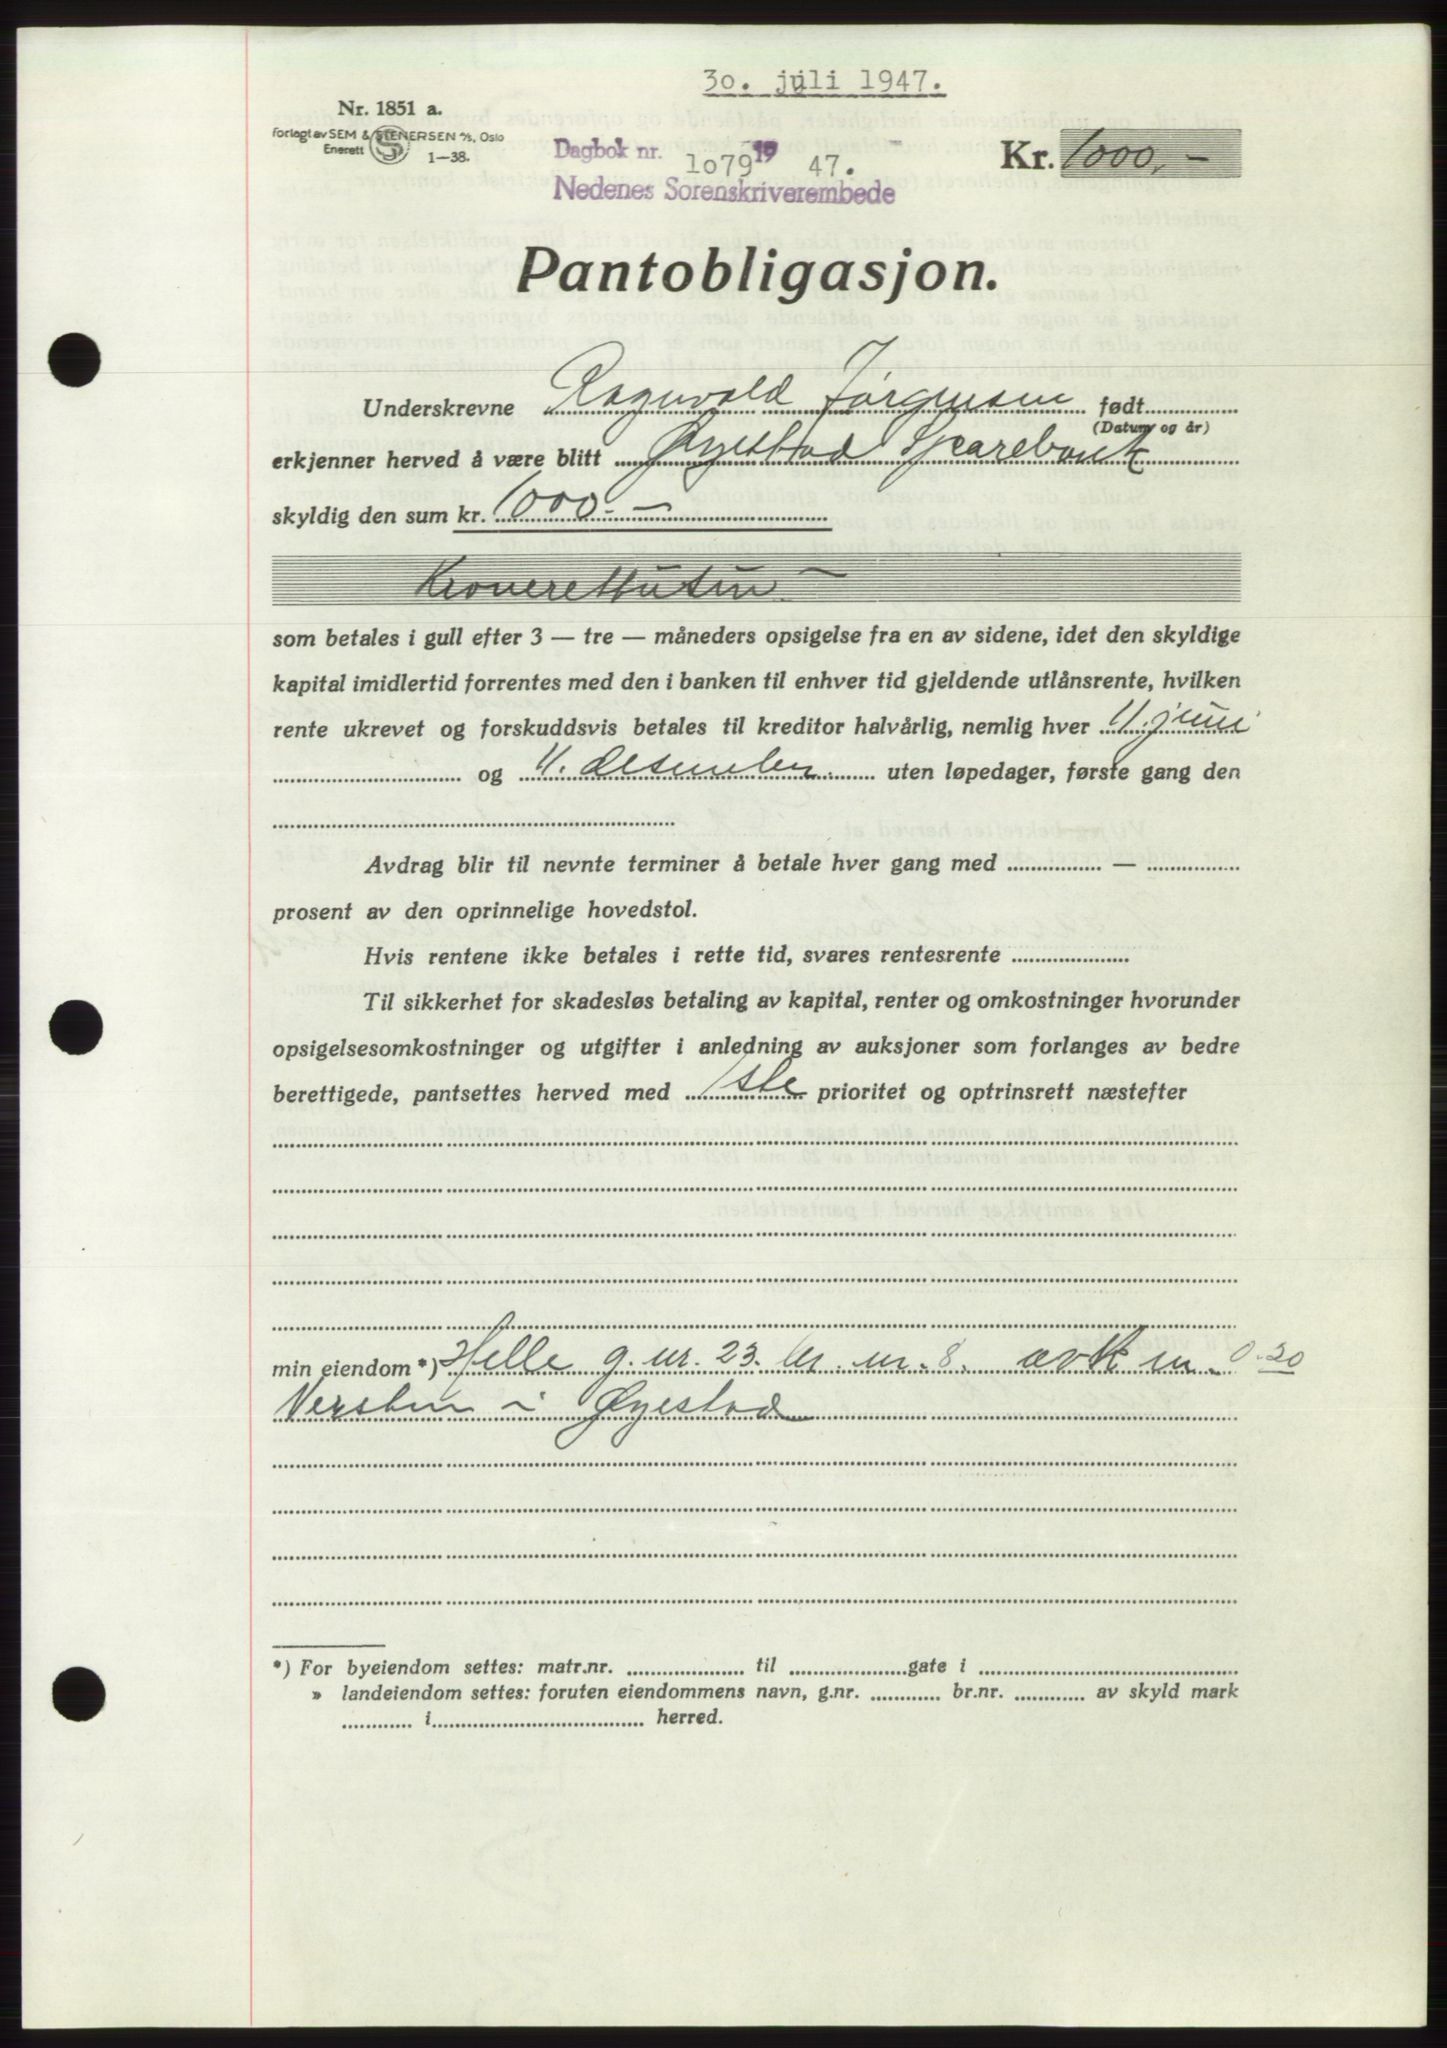 30. juli 1947.
Nr. 1851 a.
forlagt av SEM & STENERSEN A/S, Oslo
Enerett 1—38.
Dagbok nr. 1079 19 47.
Nedenes Sorenskriverembede
Kr. 1000,-
Pantobligasjon.
Underskrevne Ragnvald Jørgensen født
(Datum og år)
erkjenner herved å være blitt Øyestad Sparebank
skyldig den sum kr. 1000.-
Kronerettusen
som betales i gull efter 3 — tre — måneders opsigelse fra en av sidene, idet den skyldige
kapital imidlertid forrentes med den i banken til enhver tid gjeldende utlånsrente, hvilken
rente ukrevet og forskuddsvis betales til kreditor halvårlig, nemlig hver 11. juni
og 11. desember uten løpedager, første gang den
Avdrag blir til nevnte terminer å betale hver gang med —
prosent av den oprinnelige hovedstol.
Hvis rentene ikke betales i rette tid, svares rentesrente
Til sikkerhet for skadesløs betaling av kapital, renter og omkostninger hvorunder
opsigelsesomkostninger og utgifter i anledning av auksjoner som forlanges av bedre
berettigede, pantsettes herved med 1ste prioritet og optrinsrett næstefter
min eiendom *) Helle g. nr. 23. br. nr. 8. av sk m. 0.20
i Øyestad
*) For byeiendom settes: matr.nr. til gate i
» landeiendom settes: foruten eiendommens navn, g.nr. br.nr. av skyld mark
i herred.